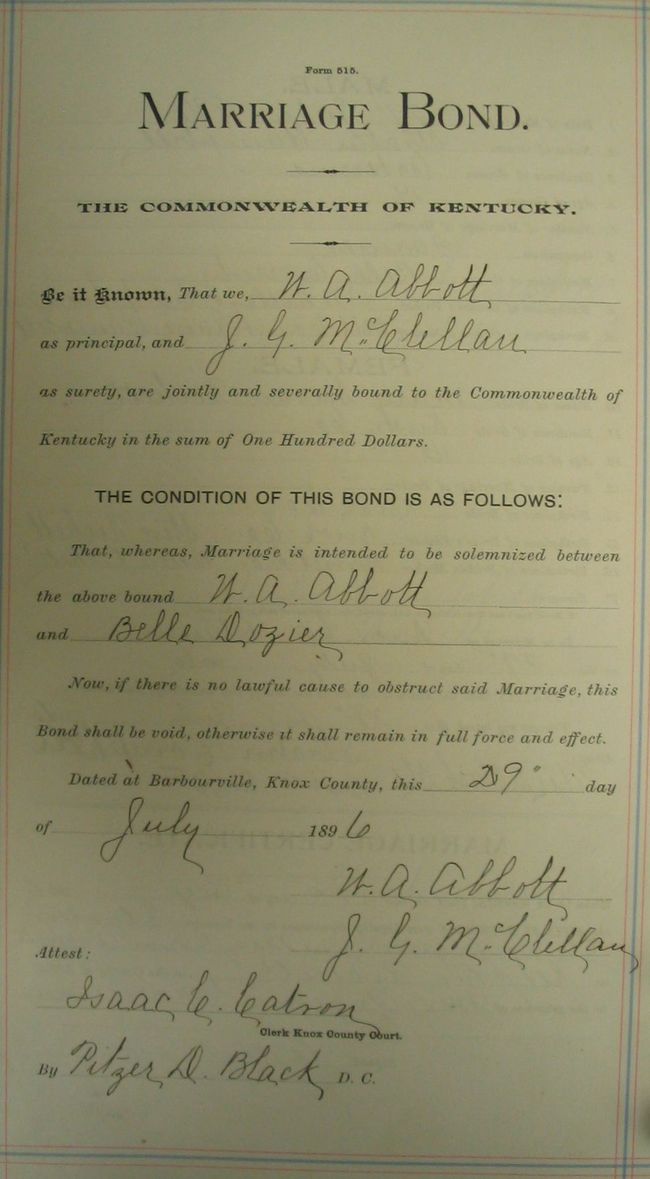 Form 515.
MARRIAGE BOND.
THE COMMONWEALTH OF KENTUCKY.
Be it Known, That we, W. A. Abbott
as principal, and J. G. McClellan
as surety, are jointly and severally bound to the Commonwealth of
Kentucky in the sum of One Hundred Dollars.
THE CONDITION OF THIS BOND IS AS FOLLOWS:
That, whereas, Marriage is intended to be solemnized between
the above bound W. A. Abbott
and Belle Dozier
Now, if there is no lawful cause to obstruct said Marriage, this
Bond shall be void, otherwise it shall remain in full force and effect.
Dated at Barbourville, Knox County, this 29" day
of July 1896
W. A. Abbott
J. G. McClellan
Attest:
Isaac C. Catron
Clerk Knox County Court.
By Pitzer D. Black D. C.